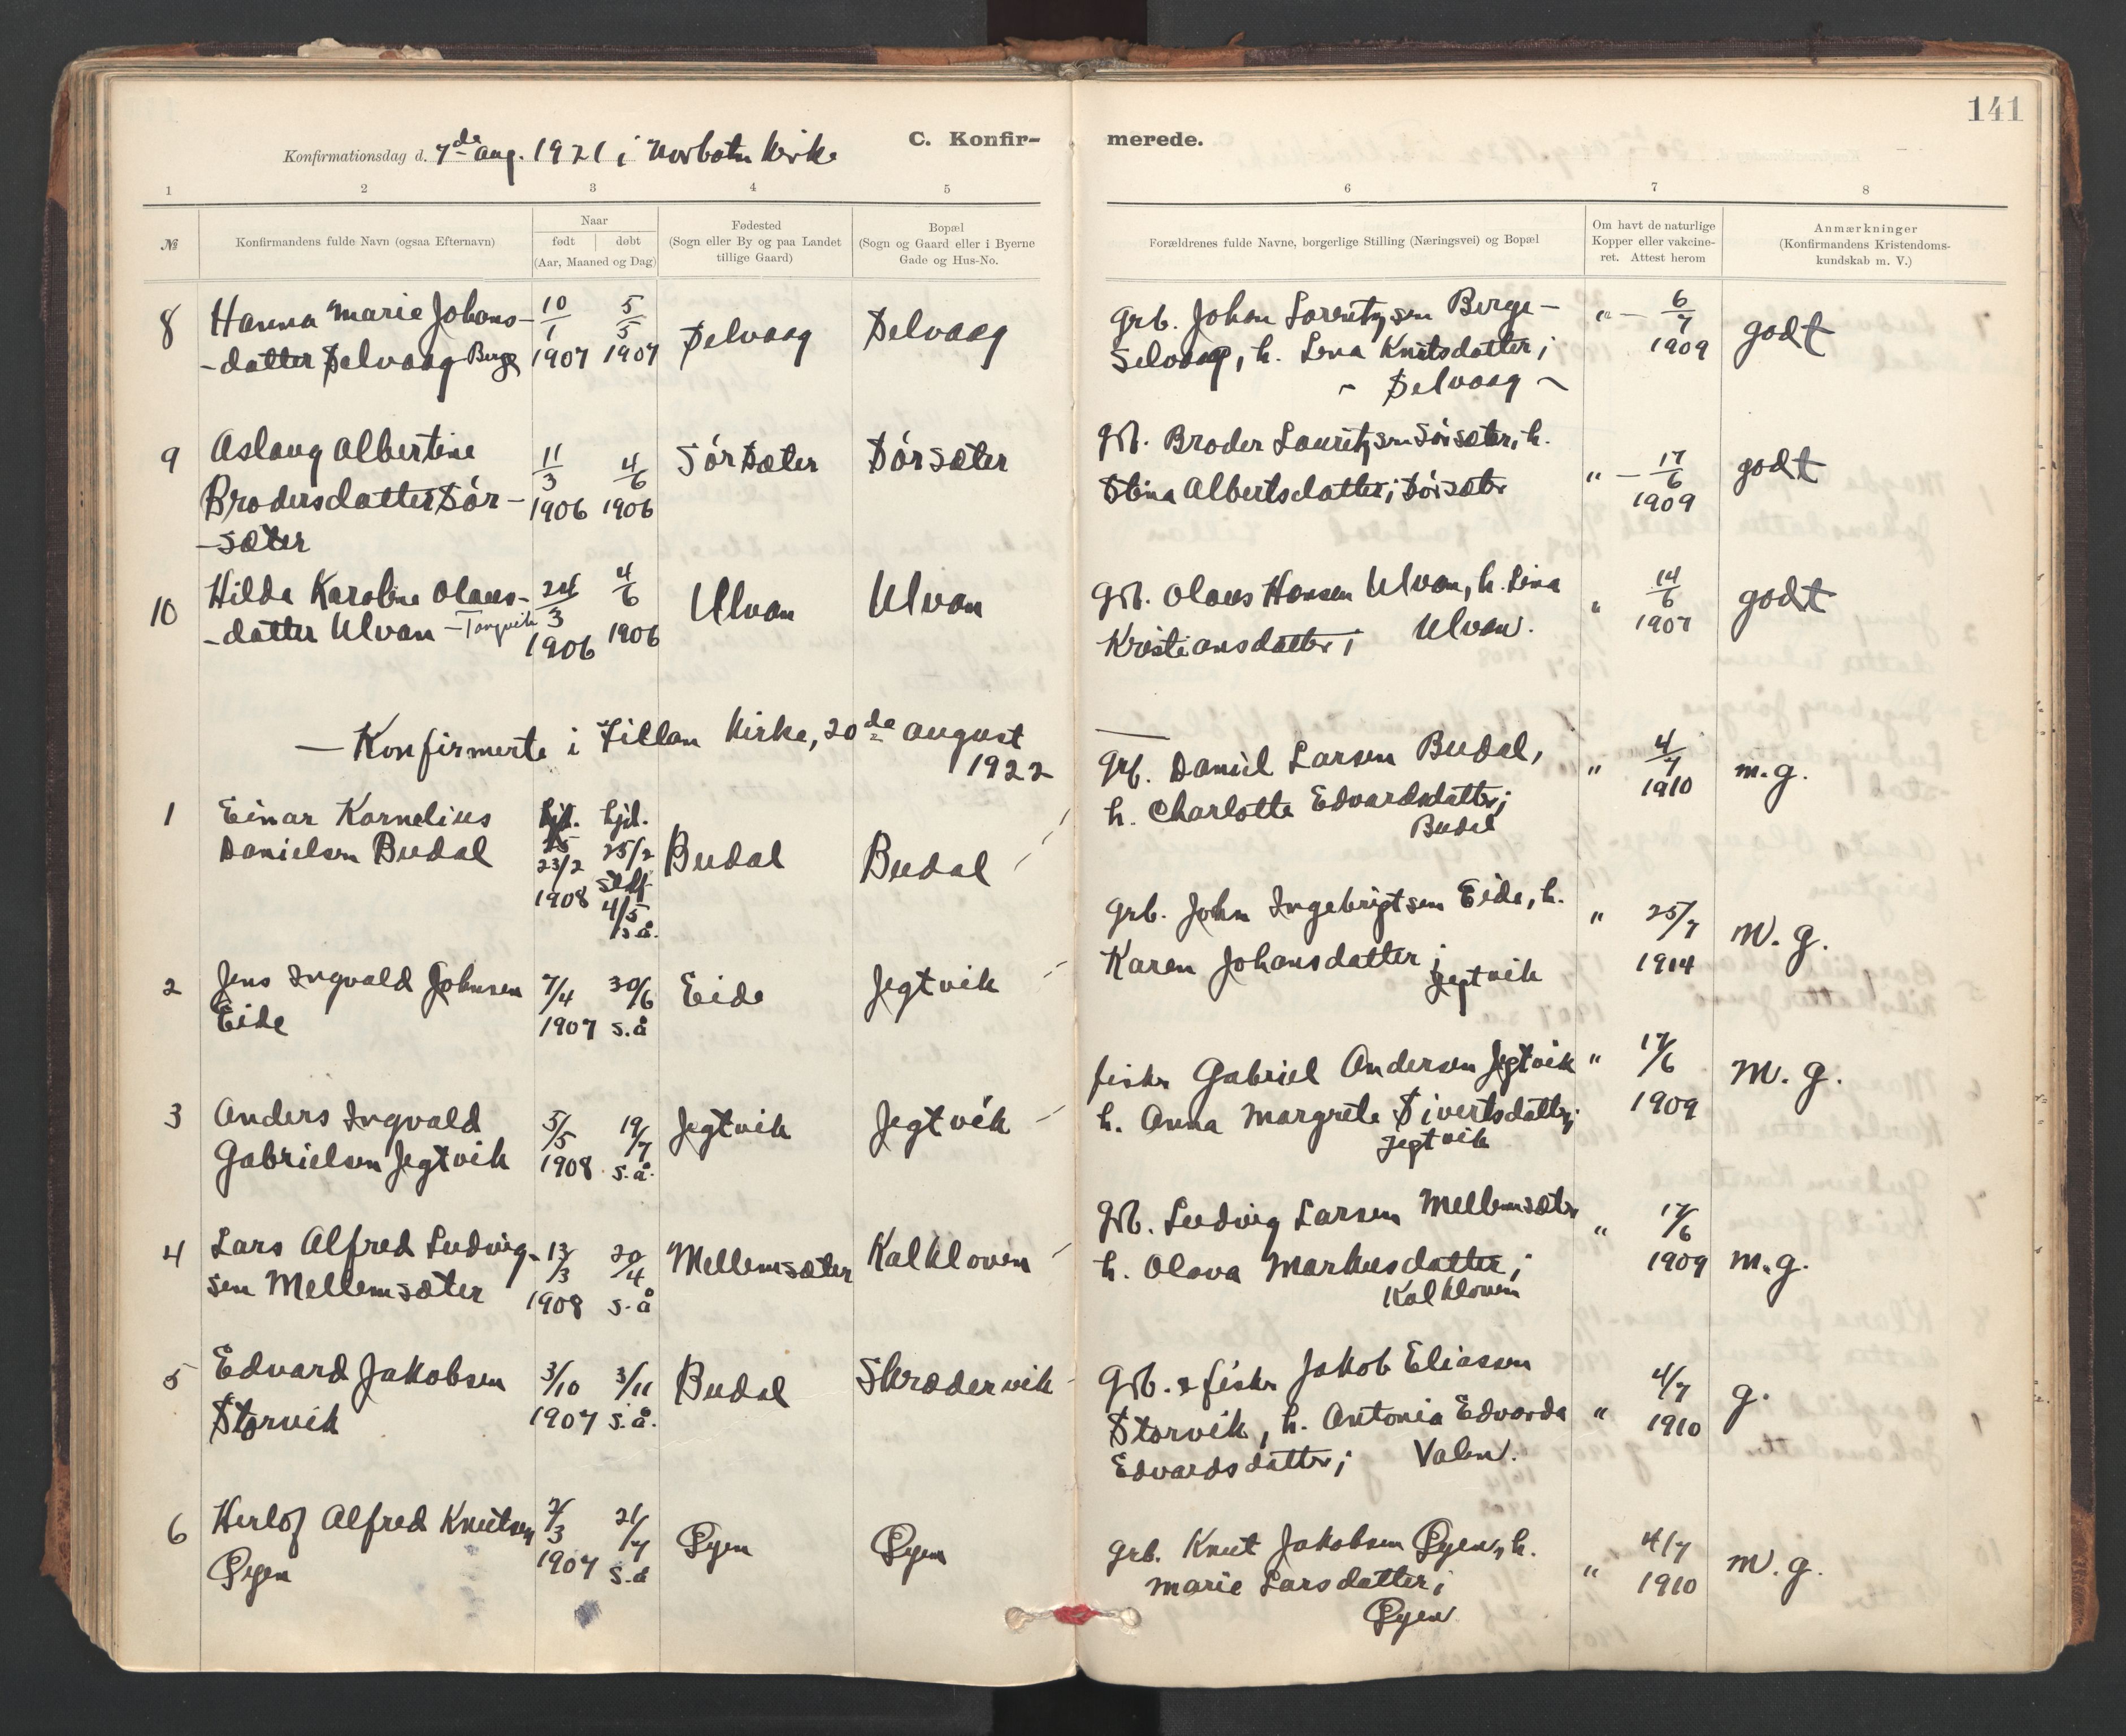 141
C. Konfir-
merede.
Konfirmationsdag d. 7de aug. 1921 i Norbotn Kirke
1 2 3 4 5
6 7 8
№
Konfirmandens fulde Navn (ogsaa Efternavn)
Naar
født døbt
(Aar, Maaned og Dag)
Fødested
(Sogn eller By og paa Landet
tillige Gaard)
Bopæl
(Sogn og Gaard eller i Byerne
Gade og Hus-No.
Forældrenes fulde Navne, borgerlige Stilling (Næringsvei) og Bopæl
Om havt de naturlige
Kopper eller vakcine-
ret. Attest herom
Anmærkninger
(Konfirmandens Kristendoms-
kundskab m. V.)
8 Hanna Marie Johans- 10/1 5/5 Selvaag Selvaag
-datter Selvaag Berge 1907 1907
Grb. Johan Lorentzsen Berge- " - 6/7 godt
Selvaag, h. Lena Knutsdatter; 1909
- Selvaag -
9 Aslaug Albertine 11/3 4/6 Sörsæter Sörsæter
Brodersdatter Sör- 1906 1906
-sæter
Grb. Broder Lauritzsen Sörsæter, h.
Stina Albertsdatter; Sörsæter " - 17/6 1909 godt
10 Hilda Karoline Olaus- 24/3 4/6 Ulvan Ulvan
-datter Ulvan -Tangvik 1906 1906
Grb. Olaus Hansen Ulvan, h. Lina " 14/6 godt
Kristiansdatter; Ulvan. 1907
— Konfirmerte i Fillan Kirke, 20de august
1922
1 Einar Kornelius hjd. hjd.
Danielsen Budal 23/2 25/2 Budal Budal
1908 4/5 s.å.
Grb. Daniel Larsen Budal, " 4/7 m.g.
h. Charlotte Edvardsdatter; 1910
Budal
2 Jens Ingvald Johnsen 7/4 30/6 Eide Jegtvik
Eide 1907 s.å
Grb. John Ingebrigtsen Eide, h. " 25/7 M.g.
Karen Johansdatter; 1914
Jegtvik
3 Anders Ingvald 5/5 19/7 Jegtvik Jegtvik
Gabrielsen Jegtvik 1908 s.å.
fisker Gabriel Andersen Jegtvik " 17/6 M.g.
h. Anna Margrete Sivertsdatter; 1909
Jegtvik
4 Lars Alfred Ludvig- 13/3 20/4 Mellemsæter Kalkloven
sen Mellemsæter 1908 s.å
Grb. Ludvig Larsen Mellemsæter " 17/6
h. Olava Markusdatter; 1909 m.g.
Kalkloven
5 Edvard Jakobsen 3/10 3/11 Budal Skrødervik
Storvik 1907 s.å.
Grb. & fisker Jakob Eliassen 4/7 g.
Storvik, h. Antonia Edvarda " 1910
Edvardsdatter; Valen.
6 Herlof Alfred Knutsen 7/3 21/7 Øyen Øyen
Øyen 1907 s.å
Grb. Knut Jakobsen Øyen, h. 4/7
Marie Larsdatter; " 1910 M.g.
Øyen